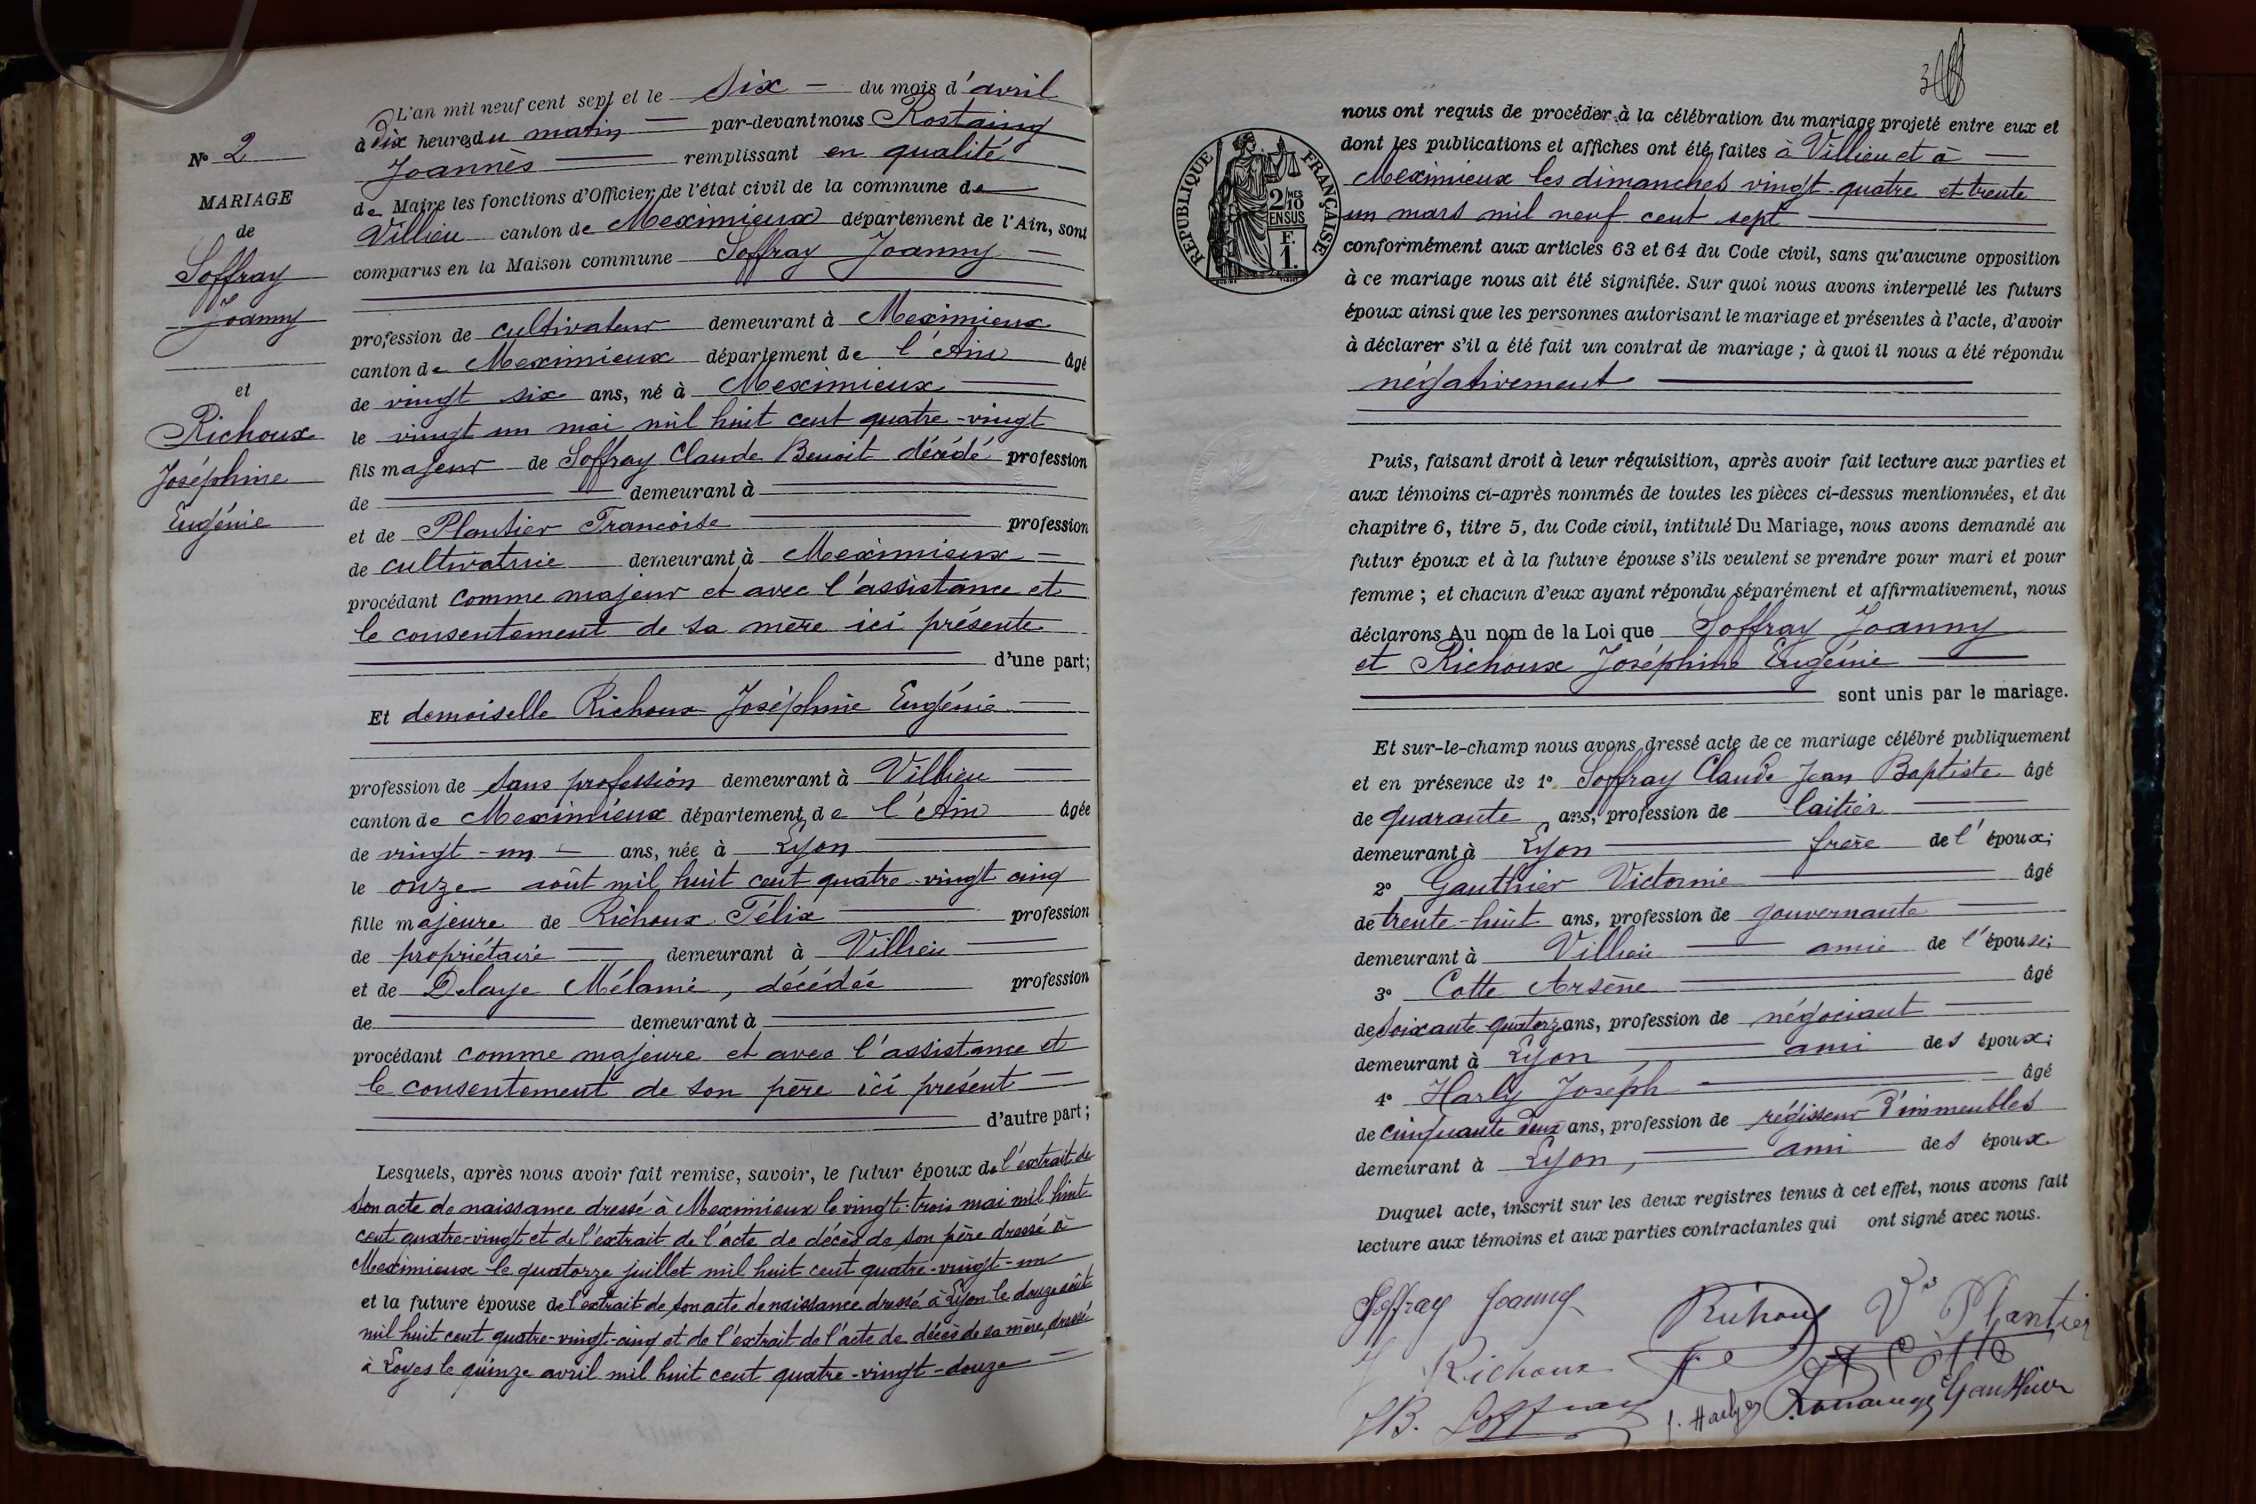 N° 2
MARIAGE
de
Soffray
Joanny
et
Richoux
Joséphine
Eugénie
L'an mil neuf cent sept et le Six du mois d'avril
à Dix heures du matin par-devant nous Rostaing
Joannès remplissant en qualité
de Maire les fonctions d'Officier de l'état civil de la commune de
Villieu canton de Meximieux département de l'Ain, sont
comparus en la Maison commune Soffray Joanny
profession de cultivateur demeurant à Meximieux
canton de Meximieux département de l'Ain âgé
de vingt six ans, né à Meximieux
le vingt un mai mil huit cent quatre-vingt
fils majeur de Soffray Claude Benoit décédé profession
de demeurant à
et de Plantier Françoise profession
de cultivatrice demeurant à Meximieux
procédant comme majeur et avec l'assistance et
le consentement de sa mère ici présente
d'une part;
Et demoiselle Richoux Joséphine Eugénie
profession de sans profession demeurant à Villieu
canton de Meximieux département de l'Ain âgée
de vingt-un ans, née à Lyon
le onze août mil huit cent quatre-vingt cinq
fille majeure de Richoux Félix profession
de propriétaire demeurant à Villieu
et de Delaye Mélanie, décédée profession
de demeurant à
procédant comme majeure et avec l'assistance et
le consentement de son père ici présent
d'autre part;
Lesquels, après nous avoir fait remise, savoir, le futur époux de l'extrait de
son acte de naissance dressé à Meximieux le vingt-trois mai mil huit
cent quatre-vingt et de l'extrait de l'acte de décès de son père dressé à
Meximieux le quatorze juillet mil huit cent quatre-vingt-un
et la future épouse de l'extrait de son acte de naissance dressé à Lyon le douze août
mil huit cent quatre-vingt-cinq et de l'extrait de l'acte de décès de sa mère, dressé
à Loyes le quinze avril mil huit cent quatre-vingt-douze
REPUBLIQUE FRANÇAISE
2 MES
10
EN SUS
F.
1.
nous ont requis de procéder à la célébration du mariage projeté entre eux et
dont les publications et affiches ont été faites à Villieu et à
Meximieux les dimanches vingt-quatre et trente
un mars mil neuf cent sept
conformément aux articles 63 et 64 du Code civil, sans qu'aucune opposition
à ce mariage nous ait été signifiée. Sur quoi nous avons interpellé les futurs
époux ainsi que les personnes autorisant le mariage et présentes à l'acte, d'avoir
à déclarer s'il a été fait un contrat de mariage ; à quoi il nous a été répondu
négativement
Puis, faisant droit à leur réquisition, après avoir fait lecture aux parties et
aux témoins ci-après nommés de toutes les pièces ci-dessus mentionnées, et du
chapitre 6, titre 5, du Code civil, intitulé Du Mariage, nous avons demandé au
futur époux et à la future épouse s'ils veulent se prendre pour mari et pour
femme ; et chacun d'eux ayant répondu séparément et affirmativement, nous
déclarons Au nom de la Loi que Soffray Joanny
et Richoux Joséphine Eugénie
sont unis par le mariage.
Et sur-le-champ nous avons dressé acte de ce mariage célébré publiquement
et en présence de 1° Soffray Claude Jean Baptiste âgé
de quarante ans, profession de laitier
demeurant à Lyon frère de l'époux;
2° Gauthier Victorine âgé
de trente-huit ans, profession de gouvernante
demeurant à Villieu amie de l'épouse;
3° Cotte Arsène âgé
de soixante quatorze ans, profession de négociant
demeurant à Lyon ami des époux;
4° Harly Joseph âgé
de cinquante deux ans, profession de régisseur d'immeubles
demeurant à Lyon, ami des époux
Duquel acte, inscrit sur les deux registres tenus à cet effet, nous avons fait
lecture aux témoins et aux parties contractantes qui ont signé avec nous.
Soffray Joanny Richoux Ve Plantier
J Richoux Fe A Cotte
JB. Soffray J. Harly Rostaing Gauthier